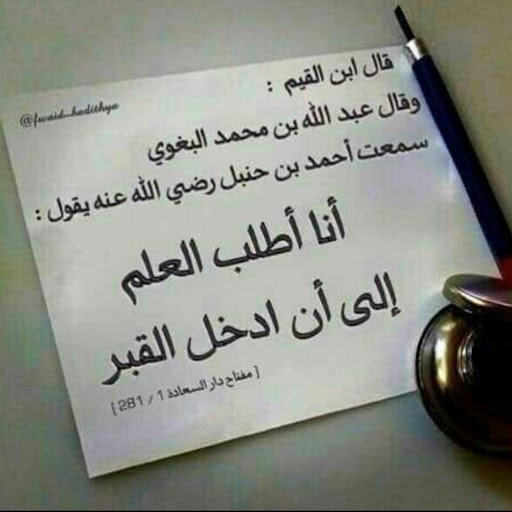 @fwaid_hadithya
قال ابن القيم :
وقال عبد الله بن محمد البغوي
سمعت أحمد بن حنبل رضي الله عنه يقول :
أنا أطلب العلم
إلى أن ادخل القبر
[ مفتاح دار السعادة 1 / 281 ]